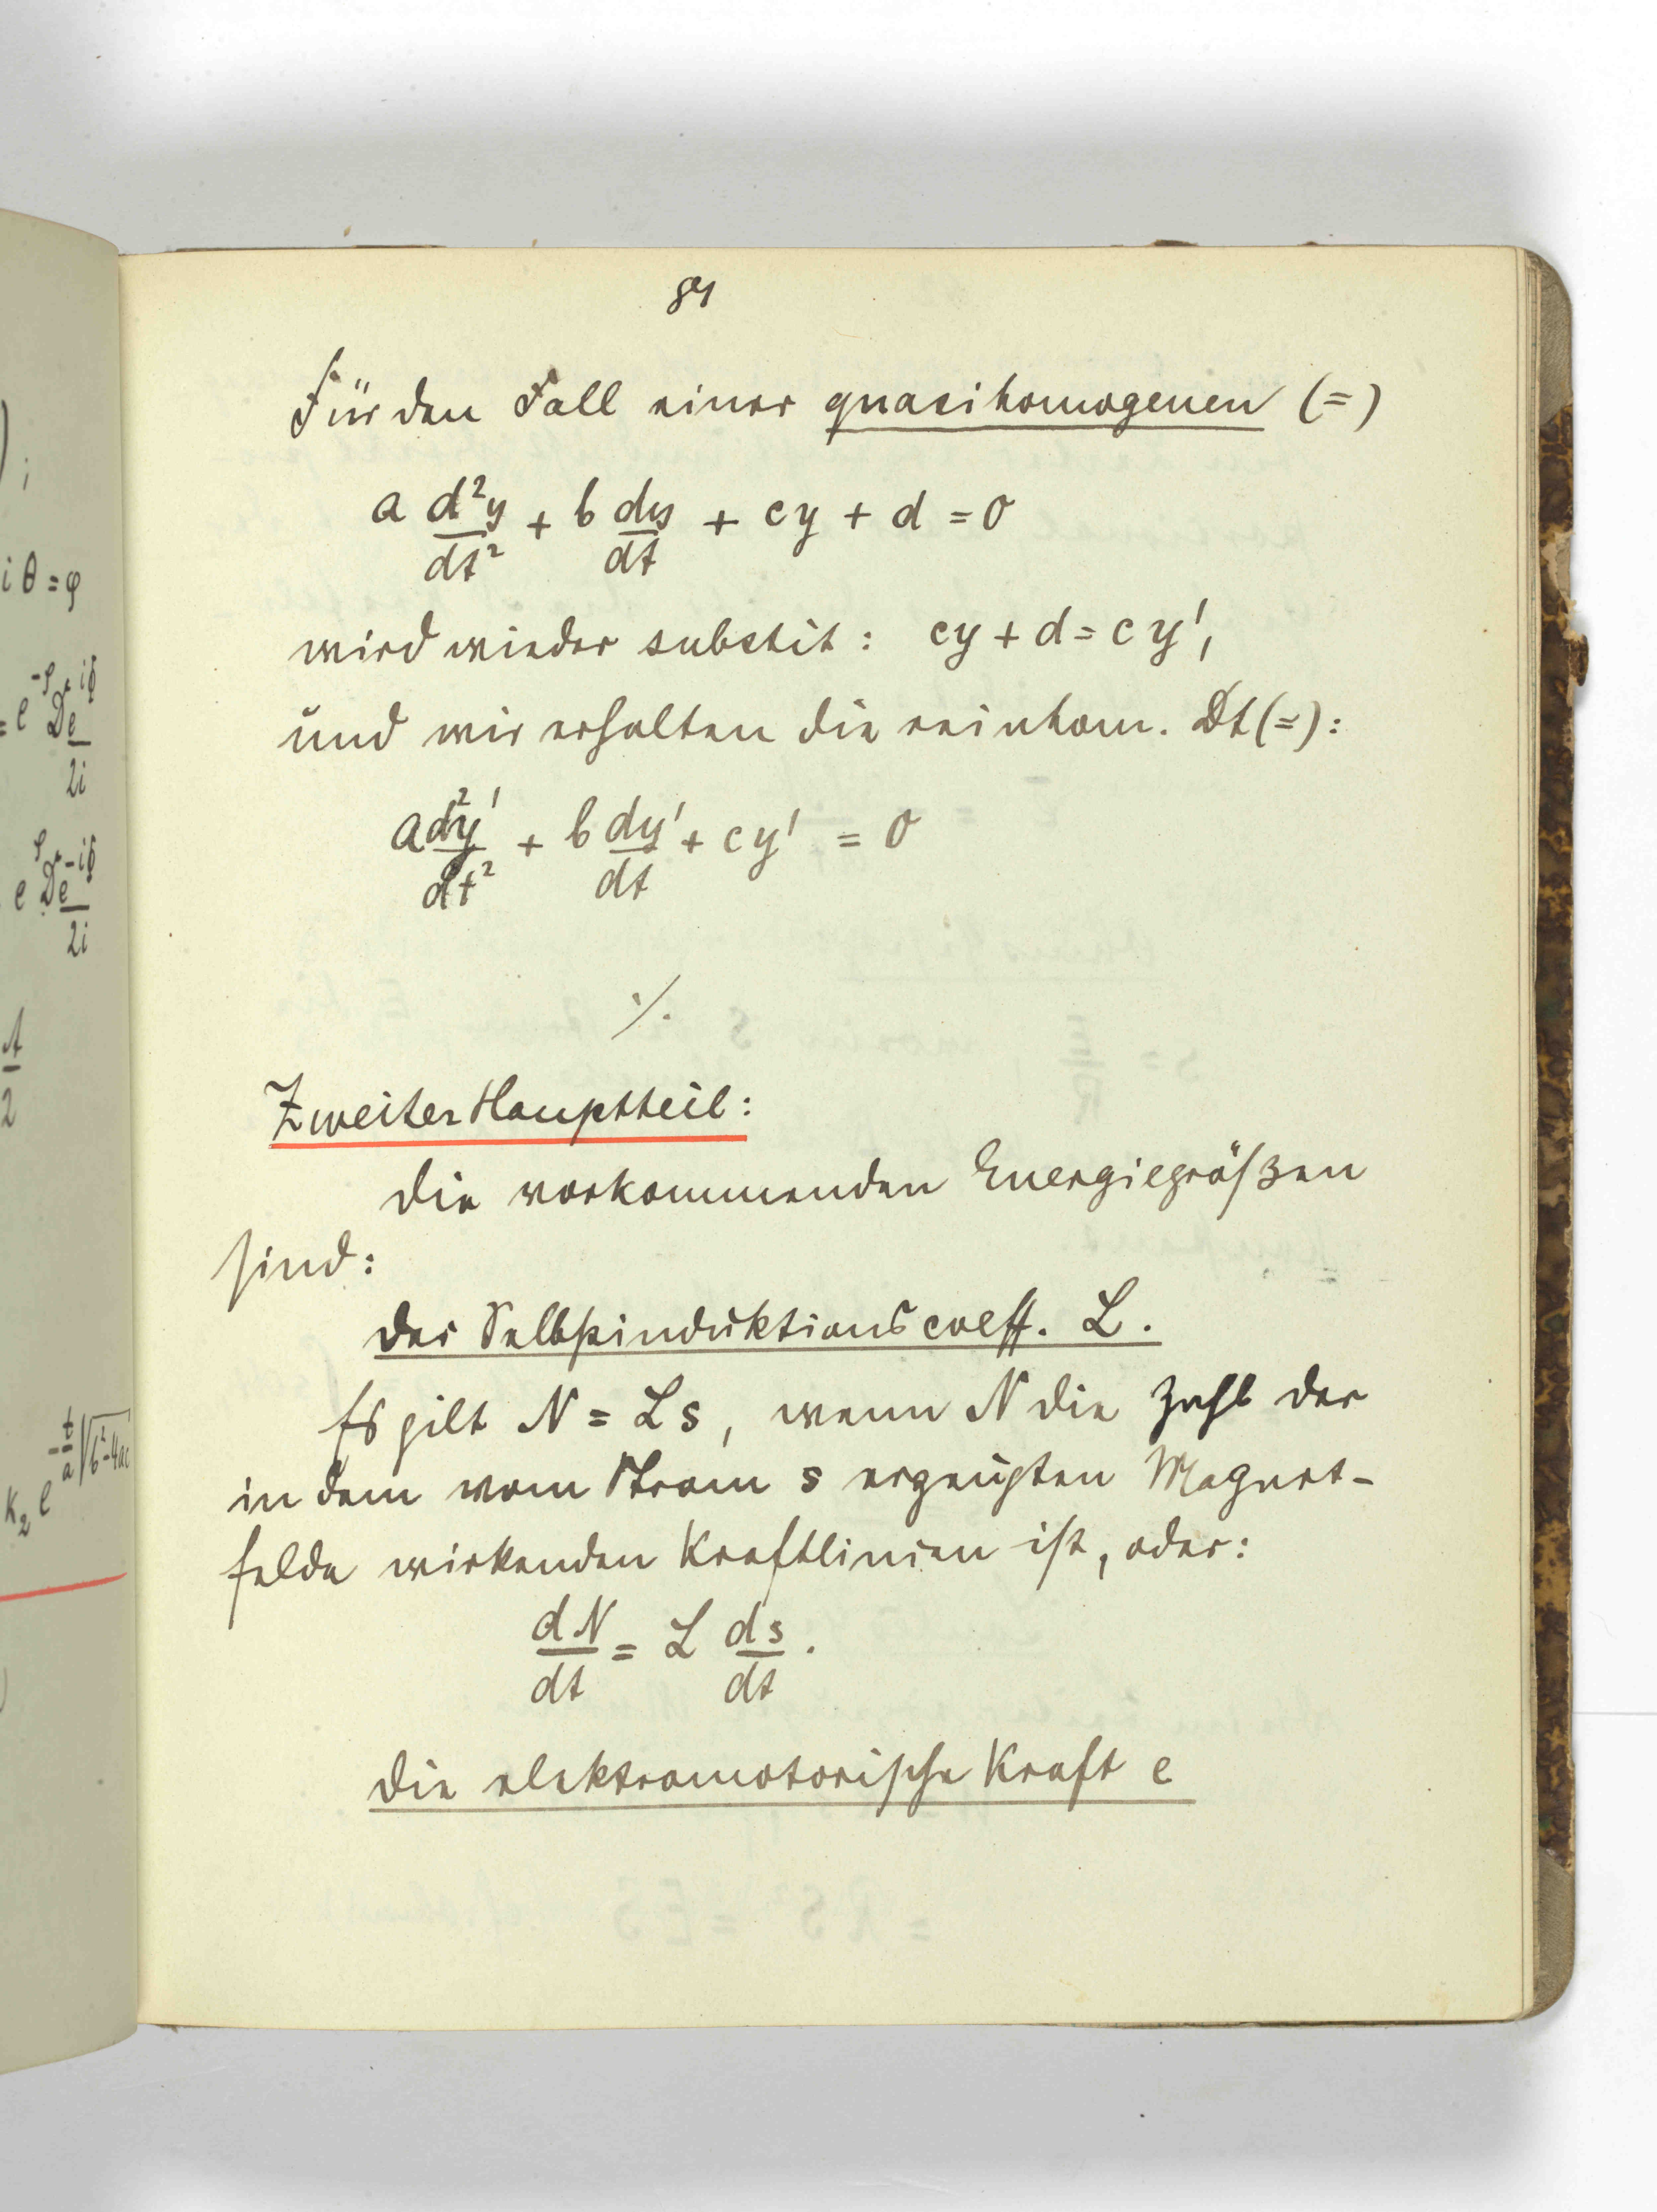 i θ = φ
2i
2i
2
84
Für den Fall einer quasihomogenen (=)
a d²y/dt² + b dy/dt + cy + d = 0
wird wieder substit: cy + d = c y',
und wir erhalten die reinhom. Dt(=):
a d²y'/dt² + b dy'/dt + cy' = 0
⁒
Zweiter Hauptteil:
Die vorkommenden Energiegrößen
sind:
Der Selbstinduktionscoeff. L.
Es gilt N = Ls, wenn N die Zahl der
in dem vom Strom s erzeugten Magnet-
felde wirkenden Kraftlinien ist, oder:
dN/dt = L ds/dt.
Die elektromotorische Kraft e